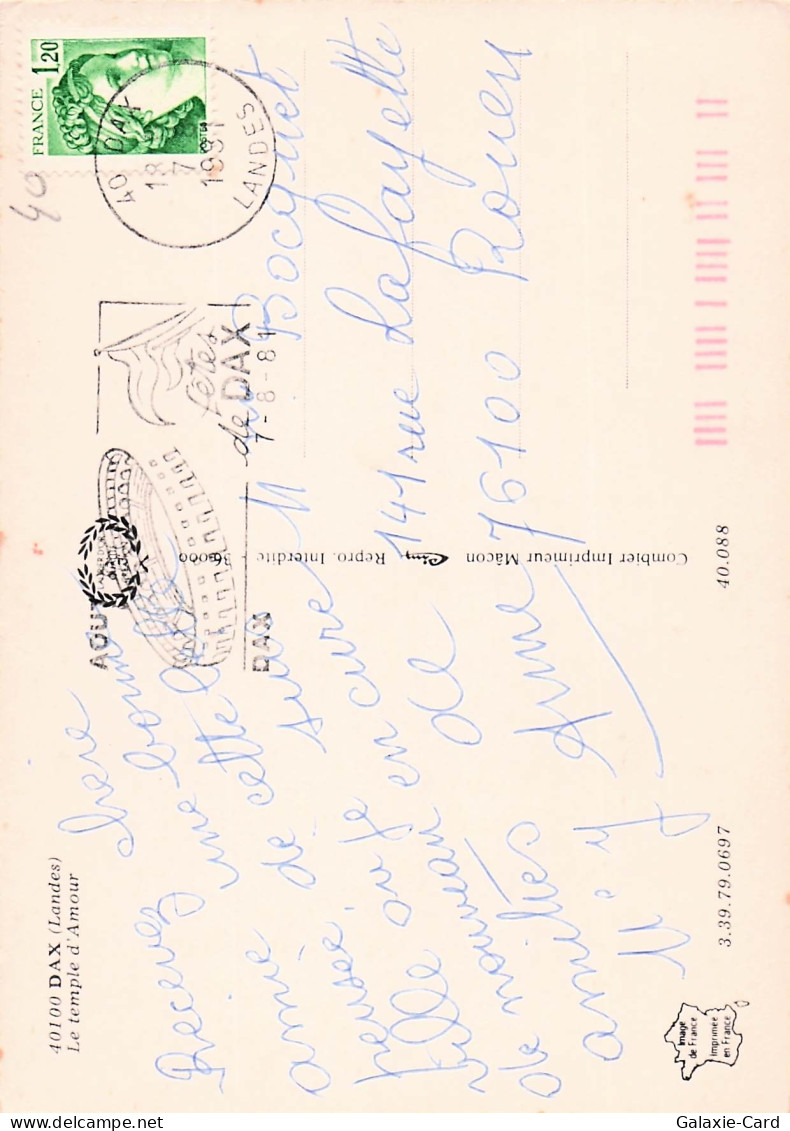 40100 DAX (Landes)
Le temple d'Amour
chère
Recevez une bonne
amie de cette belle
heureuse, ville
ville où je suis
de nouveau en cure
amitiés de
M et Y Anne
M Bocquet
141 rue Lafayette
76100 Rouen
1,20
FRANCE
POSTES
40 DAX
18
7
1981
LANDES
40
fêtes
de DAX
7-8-81
AOUT
DAX
Combier Imprimeur Mâcon Cim Repro. Interdite
40.088
3.39.79.0697
Image
de France
Imprimée
en France
Galaxie-Card